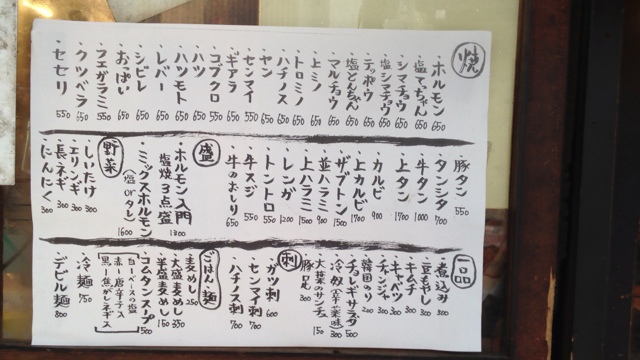 焼
・ホルモン 650
・塩てっちゃん 650
・シマチョウ 650
・塩シマチョウ 650
・テッポウ 650
・塩とんちゃん 650
・マルチョウ 650
・上ミノ
・トロミノ
・ハチノス 650
・ヤン 650
・センマイ 550
・ギアラ 650
・コブクロ 550
・ハツ 650
・ハツモト 650
・レバー 650
・シビレ 650
・おっぱい 650
・フエガラミ 550
・クツベラ 650
・セセリ 550
・豚タン 550
・タンシタ 700
・牛タン 1000
・上タン 1700
・カルビ 900
・上カルビ 1700
・ザブトン 1500
・並ハラミ 900
・上ハラミ 1500
・レンガ 1200
・トントロ 550
・牛スジ 550
・牛のおしり 650
盛
・ホルモン入門
塩焼3点盛 1300
・ミックスホルモン
(塩orタレ) 1600
野菜
・しいたけ 300
・エリンギ 300
・長ネギ 300
・にんにく 300
一品
・煮込み 500
・豆もやし 300
・キムチ 300
・キャベツ 300
・チャンジャ 300
・韓国のり 200
・チョレギサラダ 500
・冷奴(辛薬味) 300
・大葉のサンチュ 150
・豚足 300
刺
・ガツ刺 600
・センマイ刺 700
・ハチノス刺 700
ごはん 麺
・麦めし 250
・大盛麦めし 350
・半盛麦めし 150
・コムタンスープ 500
白ーベースの塩
赤ー唐辛子入
黒ー焦がしネギ入
・冷麺 750
・デビル麺 800